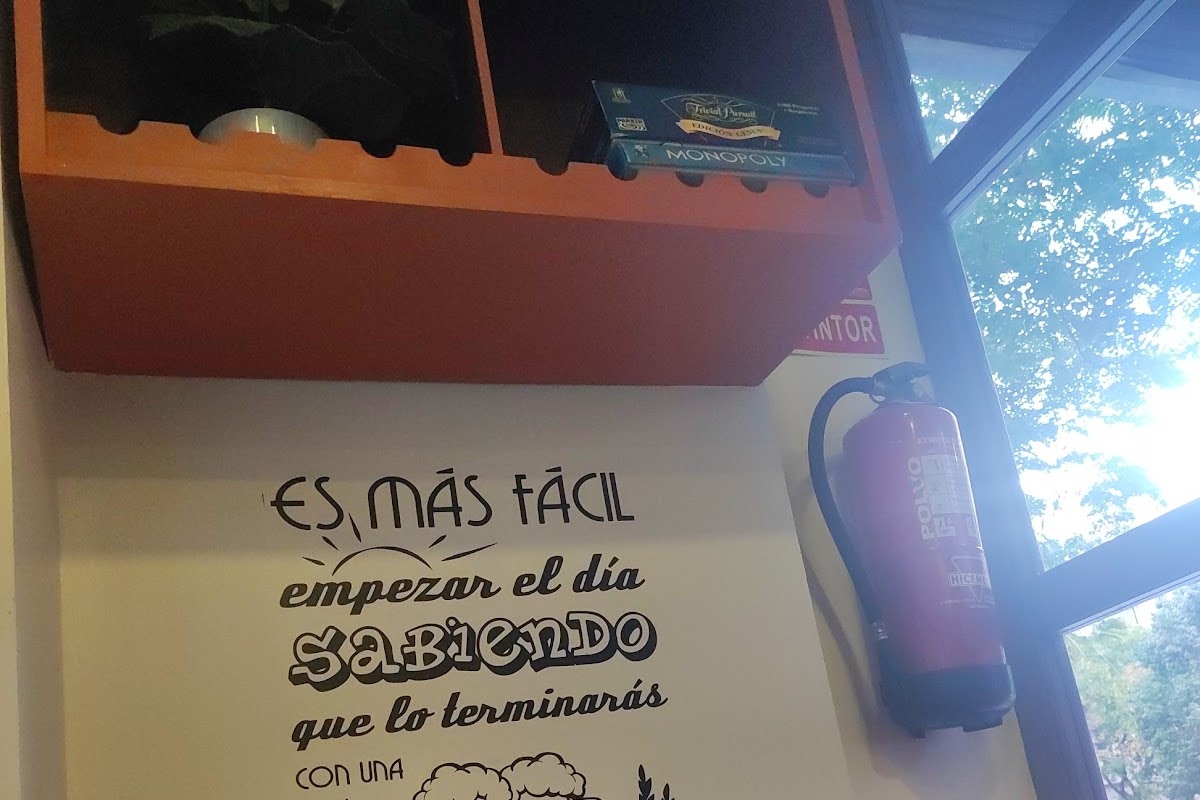 Trivial Pursuit
EDICIÓN GENUS
MONOPOLY
POLVO
HICEME
ES MÁS FÁCIL
empezar el día
SABiENDO
que lo terminarás
CON UNA